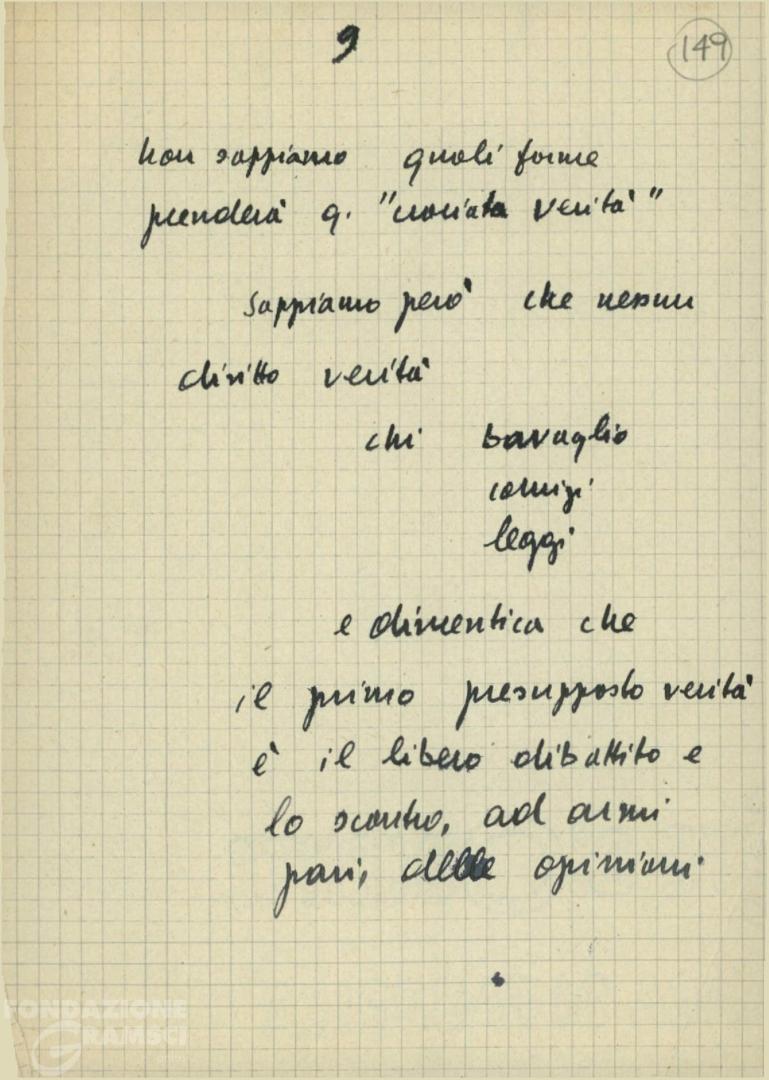 9
149
non sappiamo quali forme
prenderà q. "crociata verità"
Sappiamo però che nessun
diritto verità
chi bavaglio
comizi
leggi
e dimentica che
il primo presupposto verità
è il libero dibattito e
lo scontro, ad armi
pari, delle opinioni.
FONDAZIONE
GRAMSCI